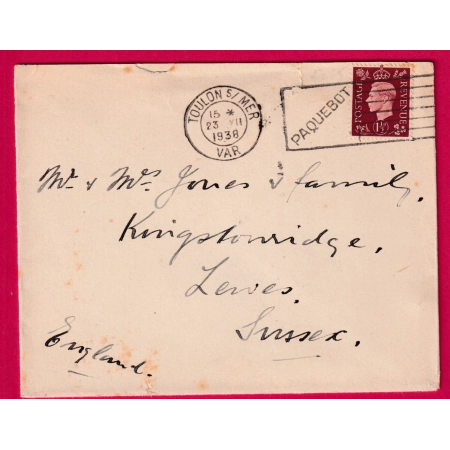 TOULON S/MER
15 *
23 XII
1938
VAR
PAQUEBOT
POSTAGE REVENUE
1½D
Mr. & Mrs. Jones & family,
Kingstonridge,
Lewes.
Sussex.
England.